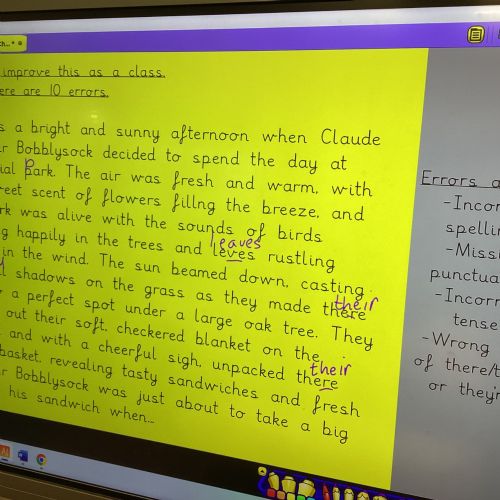 improve this as a class.
ere are 10 errors.
s a bright and sunny afternoon when Claude
r Bobblysock decided to spend the day at
ial Park. The air was fresh and warm, with
reet scent of flowers fillng the breeze, and
rk was alive with the sounds of birds
leaves
g happily in the trees and leves rustling
in the wind. The sun beamed down, casting
their
shadows on the grass as they made there
a perfect spot under a large oak tree. They
out their soft, checkered blanket on the
their
and with a cheerful sigh, unpacked there
basket, revealing tasty sandwiches and fresh
r Bobblysock was just about to take a big
his sandwich when...
Errors a
-Incor
spellin
-Missi
punctua
-Incorr
tense
-Wrong
of there/t
or they'r